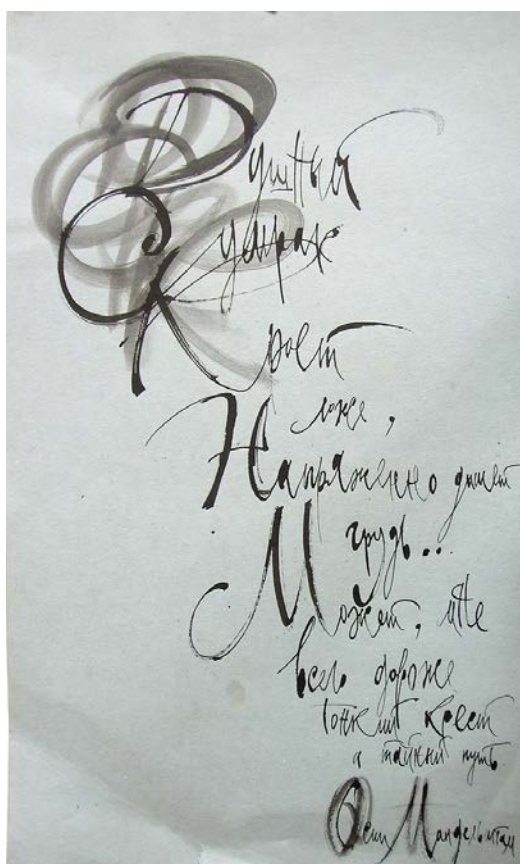 Душный
Сумрак
Кроет
ложе,
Напряженно дышит
грудь..
Может, мне
всего дороже
тонкий крест
и тайный путь.
Осип Мандельштам